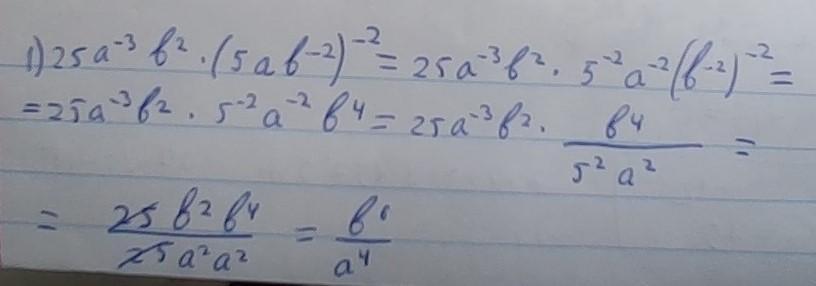 1) 25a⁻³ b² · (5ab⁻²)⁻² = 25a⁻³b² · 5⁻²a⁻²(b⁻²)⁻² =
= 25a⁻³b² · 5⁻²a⁻² b⁴ = 25a⁻³b² · b⁴/(5² a²) =
= (25 b² b⁴)/(25 a² a²) = b⁶/a⁴